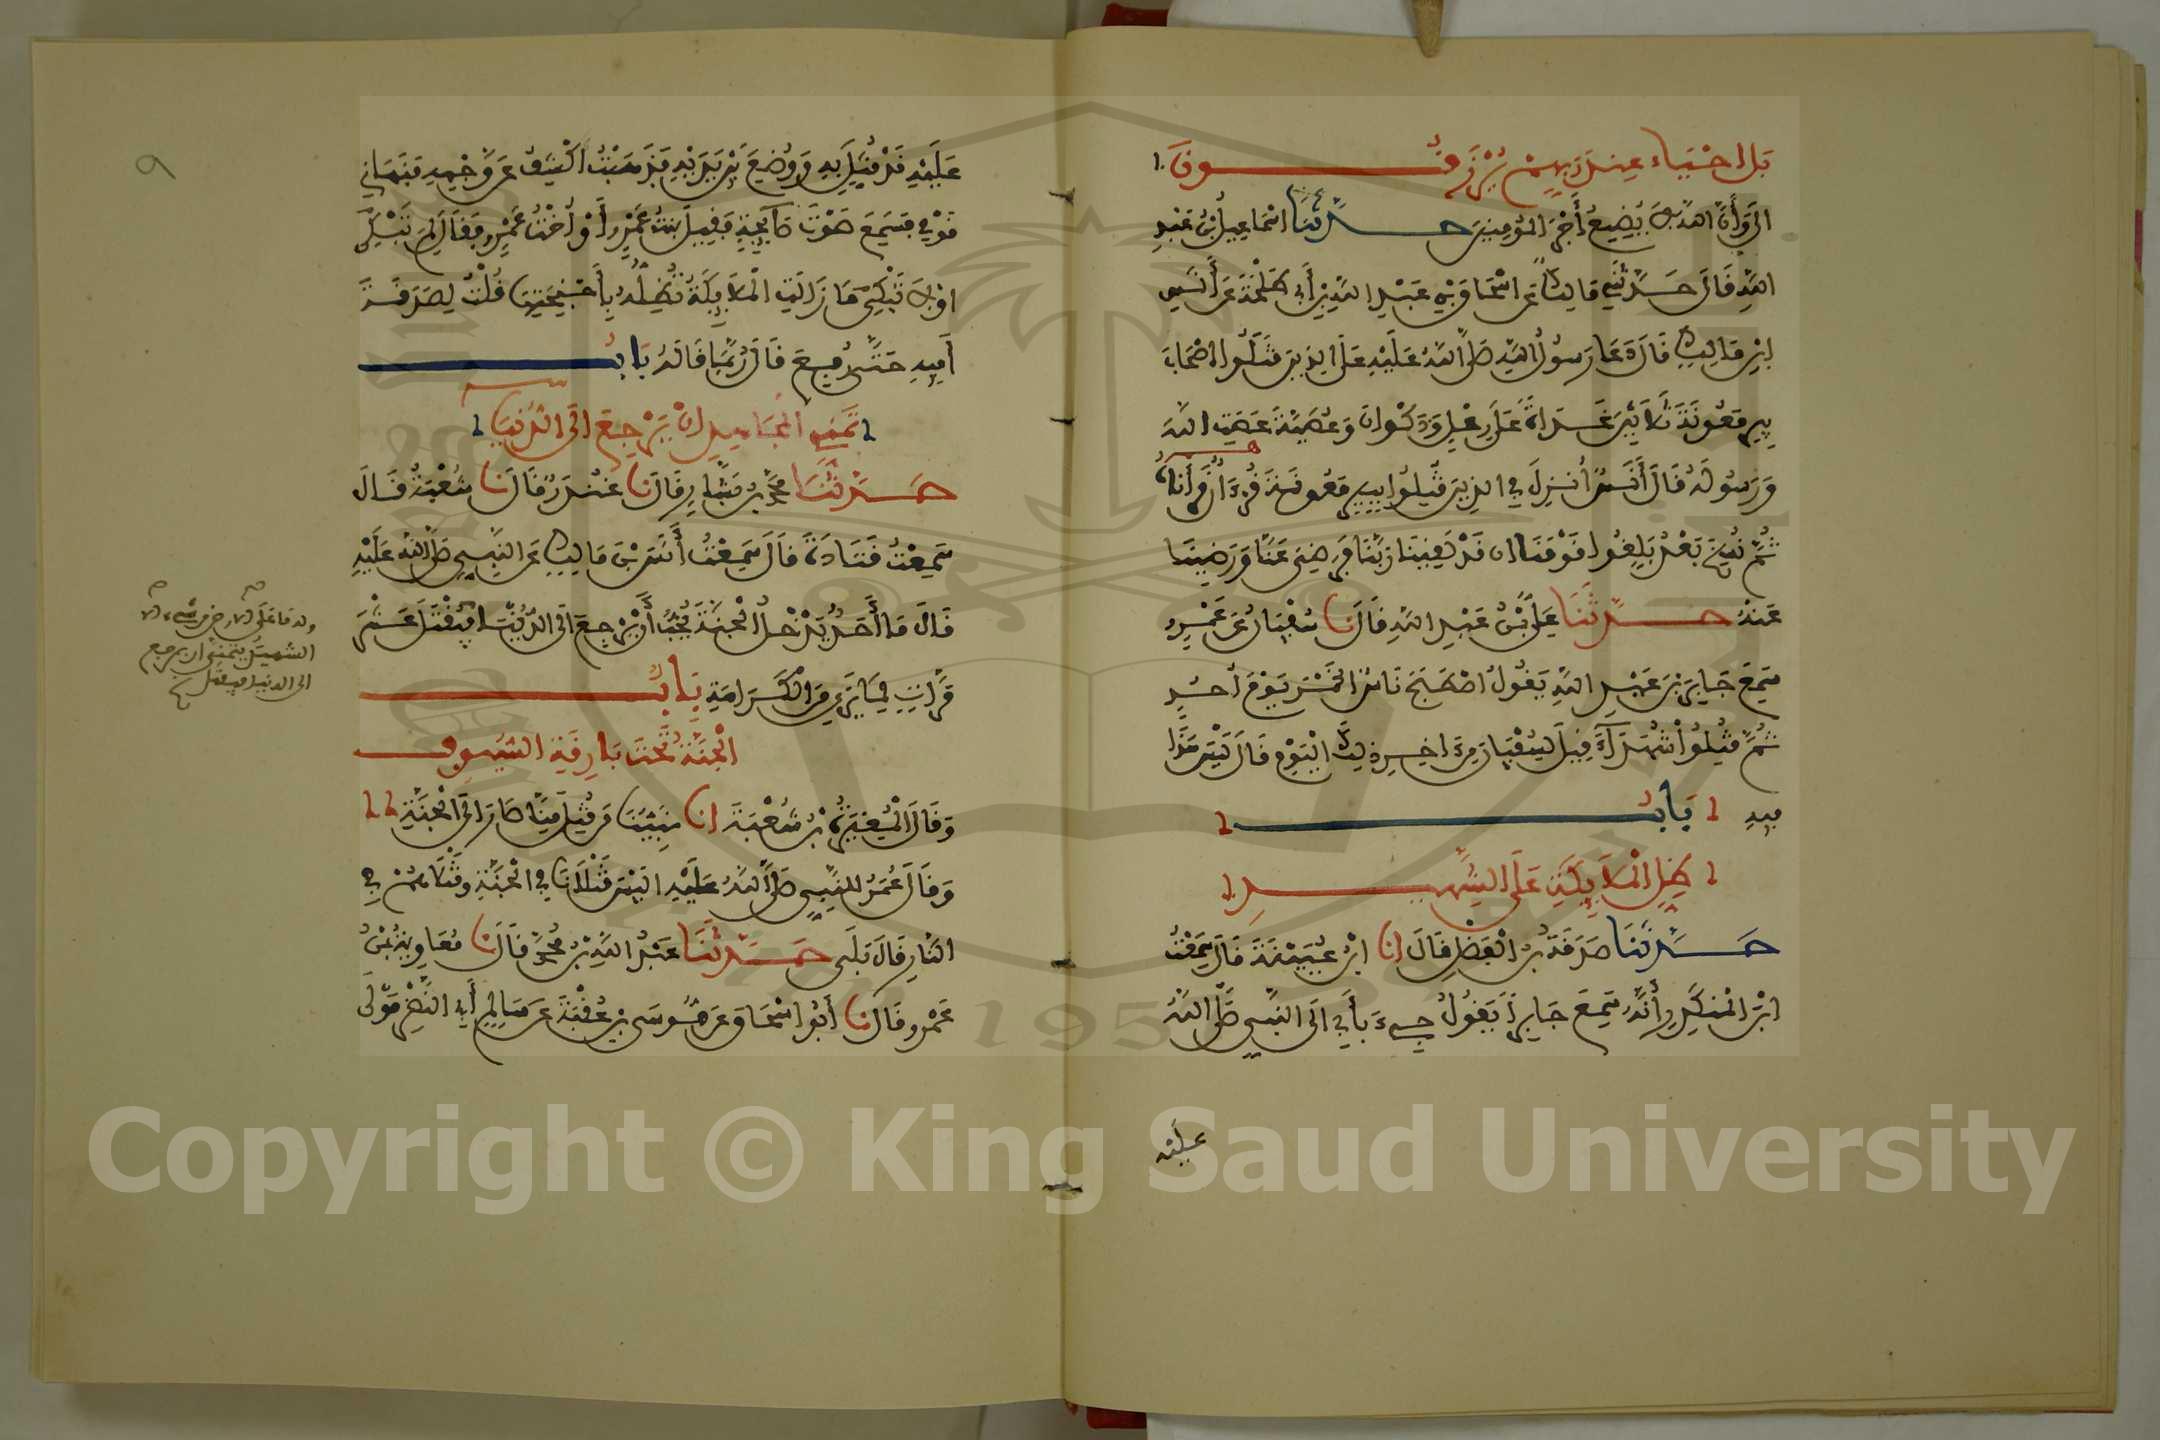 بَلْ احْيَاء عِندَ رَبِّهِمْ يُرْزَقُونَ
الَى وَأَنَّ اللَّهَ لَا يُضِيعُ أَجْرَ المُومِنِينَ حَدَّثَنَا اسْمَاعِيلُ بْنُ عَبْدِ
اللَّهِ قَالَ حَدَّثَنِي مَالِكٌ عَن اسْحَاقَ بْنِ عَبْدِ اللَّهِ بْنِ أَبِي طَلْحَةَ عَن أَنَسِ
ابْنِ مَالِكٍ قَالَ دَعَا رَسُولُ اللَّهِ صَلَّى اللَّهُ عَلَيْهِ عَلَى الذِينَ قَتَلُوا اصْحَابَ
بِيرِ مَعُونَةَ ثَلَاثِينَ غَدَاةً عَلَى رِعْلٍ وَذَكْوَانَ وَعُصَيَّةَ عَصَتِ اللَّهَ
وَرَسُولَهُ قَالَ أَنَسٌ أُنزِلَ فِي الذِينَ قُتِلُوا بِبِيرِ مَعُونَةَ قُرْءَانٌ قَرَأْنَاهُ
ثُمَّ نُسِخَ بَعْدُ بَلِّغُوا قَوْمَنَا ان قَدْ لَقِينَا رَبَّنَا فَرَضِيَ عَنَّا وَرَضِينَا
عَنْهُ حَدَّثَنَا عَلِيُّ بْنُ عَبْدِ اللَّهِ قَالَ نَا سُفْيَانُ عَن عَمْرٍو
سَمِعَ جَابِرَ بْنَ عَبْدِ اللَّهِ يَقُولُ اصْطَبَحَ نَاسٌ الخَمْرَ يَوْمَ أُحُدٍ
ثُمَّ قُتِلُوا شُهَدَآءَ فَقِيلَ لِسُفْيَانَ مِنَ اخِرِ ذَلِكَ الْيَوْمِ قَالَ لَيْسَ هَذَا
فِيهِ بَابُ
ظِلِّ الْمَلَائِكَةِ عَلَى الشَّهِيدِ
حَدَّثَنَا صَدَقَةُ بْنُ الْفَضْلِ قَالَ انا ابْنُ عُيَيْنَةَ قَالَ سَمِعْتُ
ابْنَ الْمُنكَدِرِ أَنَّهُ سَمِعَ جَابِراً يَقُولُ جِيءَ بِأَبِي الَى النَّبِيِّ صَلَّى اللَّهُ
عليه
عَلَيْهِ قَدْ مُثِّلَ بِهِ وَوُضِعَ بَيْنَ يَدَيْهِ فَذَهَبْتُ أَكْشِفُ عَن وَّجْهِهِ فَنَهَانِي
قَوْمِي فَسَمِعَ صَوْتَ صَآئِحَةٍ فَقِيلَ بِنْتُ عَمْرٍو أَوْ أُخْتُ عَمْرٍو فَقَالَ لِمَ تَبْكِي
اوْ لَا تَبْكِي مَا زَالَتِ الْمَلَائِكَةُ تُظِلُّهُ بِأَجْنِحَتِهَا قُلْتُ لِصَدَقَةَ
أَفِيهِ حَتَّى رُفِعَ قَالَ رُبَّمَا قَالَهُ بَابُ
تَمَنِّي الْمُجَاهِدِ انْ يَرْجِعَ الَى الدُّنْيَا
حَدَّثَنَا مُحَمَّدُ بْنُ بَشَّارٍ قَالَ نَا غُنْدَرٌ قَالَ نَا شُعْبَةُ قَالَ
سَمِعْتُ قَتَادَةَ قَالَ سَمِعْتُ أَنَسَ بْنَ مَالِكٍ عَن النَّبِيِّ صَلَّى اللَّهُ عَلَيْهِ
قَالَ مَا أَحَدٌ يَدْخُلُ الْجَنَّةَ يُحِبُّ أَنْ يَرْجِعَ الَى الدُّنْيَا فَيُقْتَلَ عَشْرَ
مَرَّاتٍ لِمَا يَرَى مِنَ الْكَرَامَةِ بَابُ
الْجَنَّةُ تَحْتَ بَارِقَةِ السُّيُوفِ
وَقَالَ الْمُغِيرَةُ بْنُ شُعْبَةَ انا نَبِيُّنَا مَن قُتِلَ مِنَّا صَارَ الَى الْجَنَّةِ
وَقَالَ عُمَرُ لِلنَّبِيِّ صَلَّى اللَّهُ عَلَيْهِ الَيْسَ قَتْلَانَا فِي الْجَنَّةِ وَقَتْلَاهُمْ فِي
النَّارِ قَالَ بَلَى حَدَّثَنَا عَبْدُ اللَّهِ بْنُ مُحَمَّدٍ قَالَ نَا مُعَاوِيَةُ بْنُ
عَمْرٍو قَالَ نَا أَبُو اسْحَاقَ عَن مُوسَى بْنِ عُقْبَةَ عَن سَالِمٍ أَبِي النَّضْرِ مَوْلَى
وله ما على الارض من شيء الا
الشهيد يتمنى ان يرجع
الى الدنيا فيقتل
٩
Copyright © King Saud University
1957